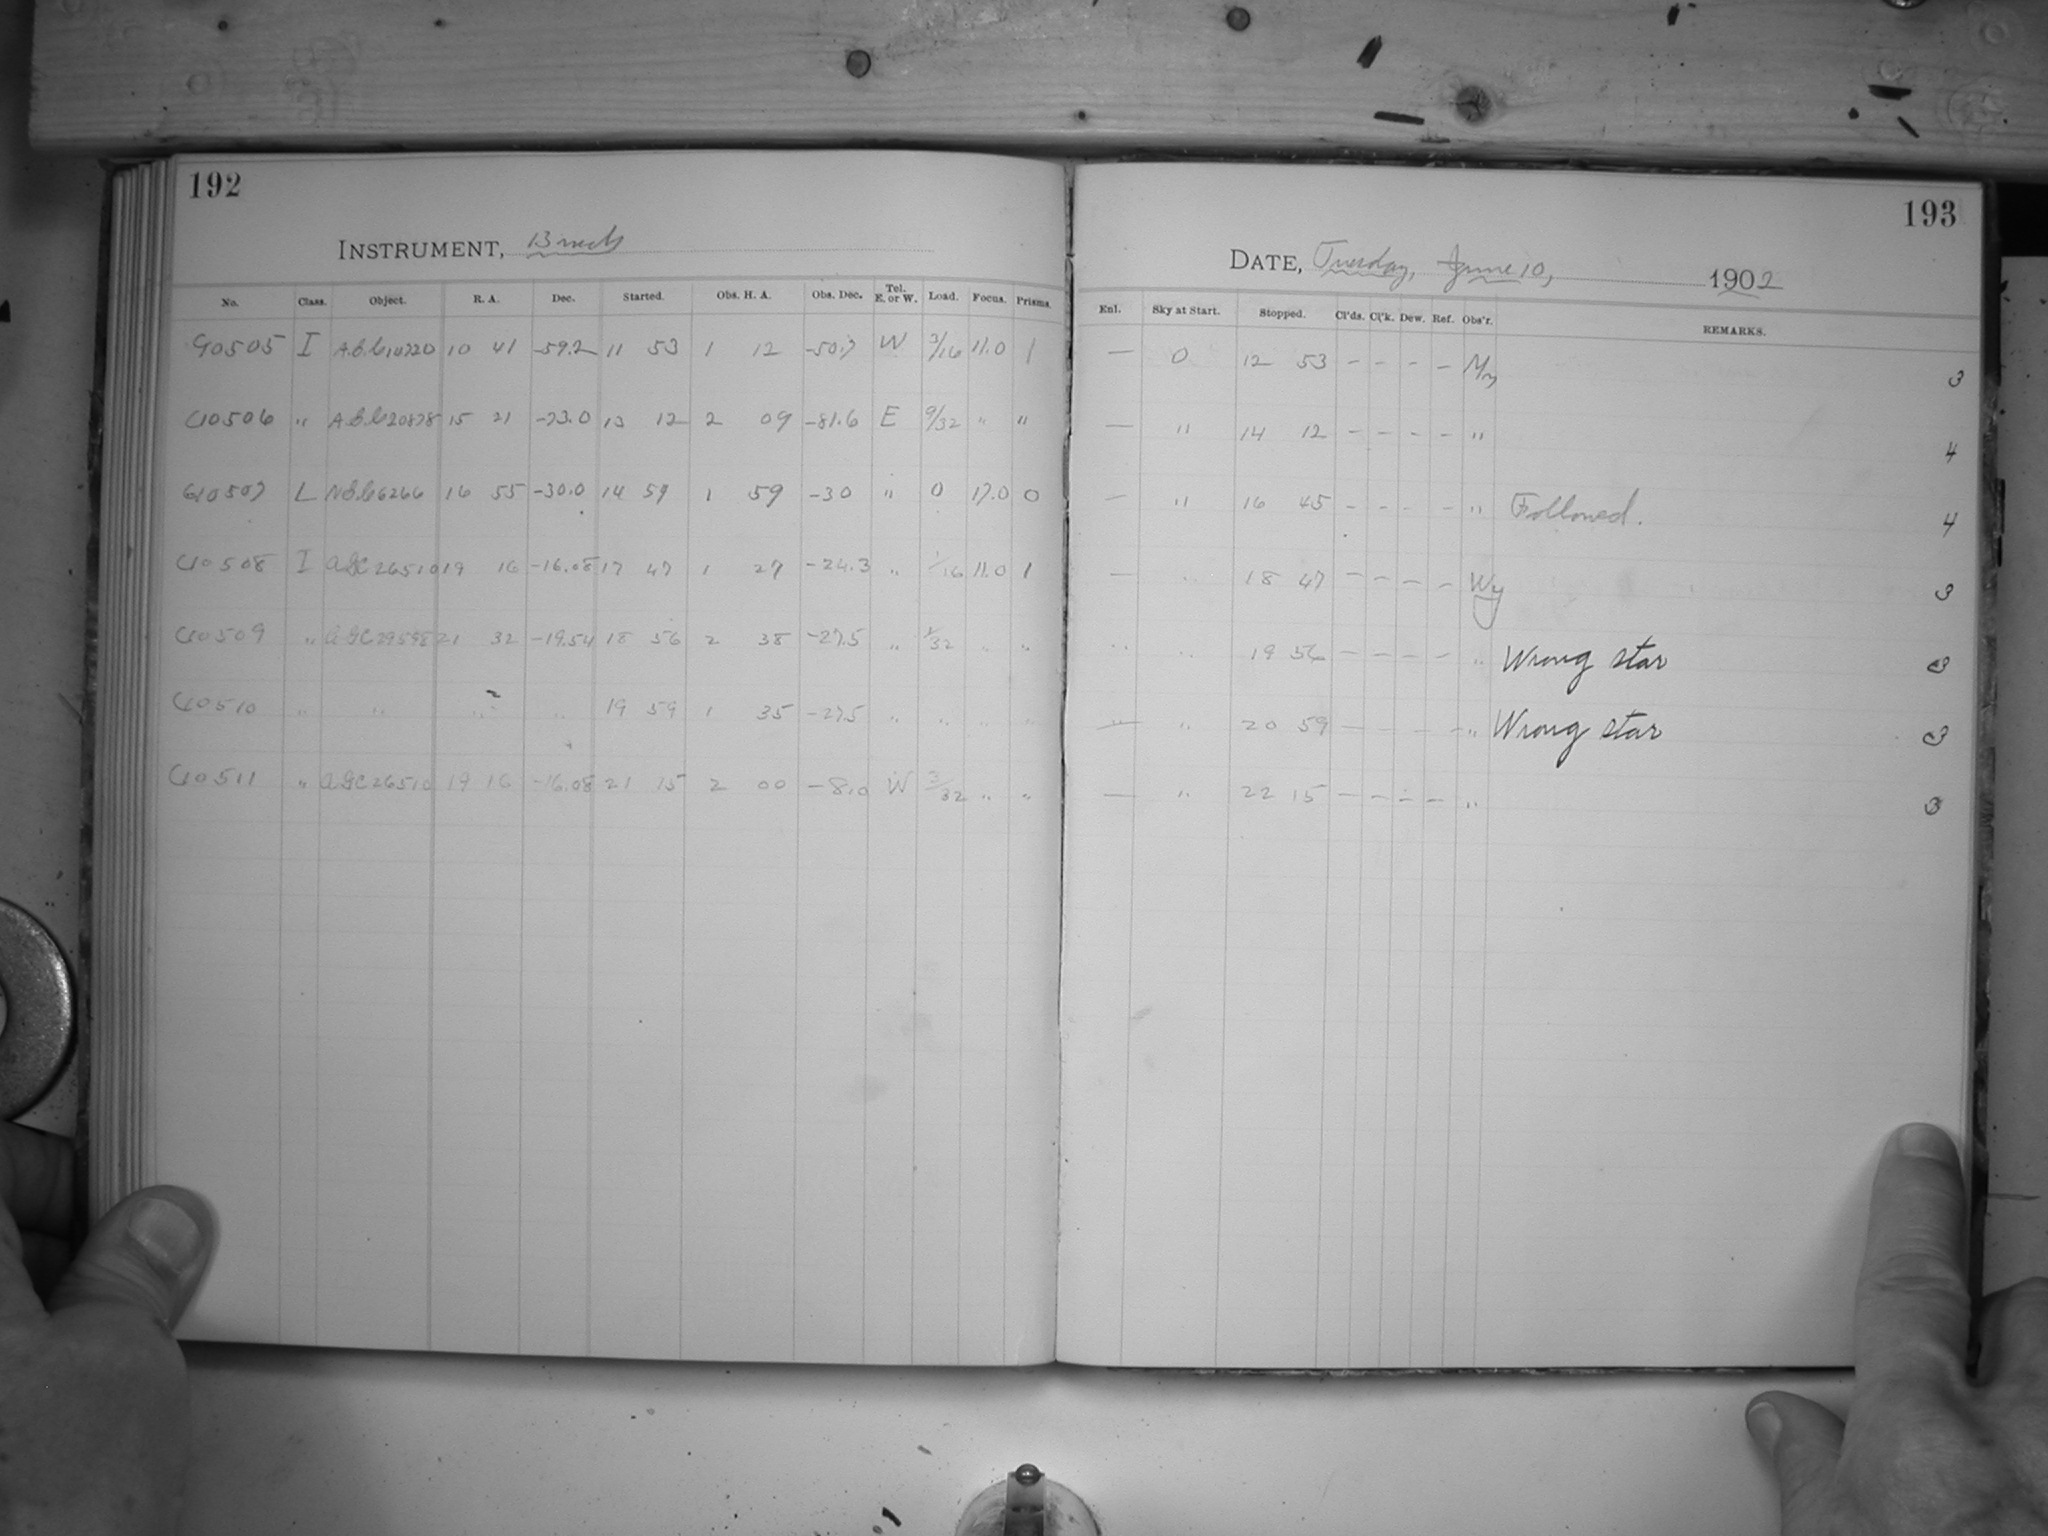 192
INSTRUMENT,
No. Class. Object. R. A. Dec. Started. Obs. H. A. Obs. Dec. Tel. E. or W. Load. Focus. Prisms.
I 10 41 -59.2 11 53 1 12 -50.7 W 3/16 11.0 1
" 15 21 -73.0 13 12 2 09 -81.6 E 9/32 " "
L 16 55 -30.0 14 59 1 59 -30 " 0 17.0 0
I AGC 26510 19 16 -16.08 17 47 1 29 -24.3 " 1/16 11.0 1
" AGC 29598 21 32 -19.54 18 56 2 38 -27.5 " /32 " "
" " " " 19 59 1 35 -27.5 " " " "
" AGC 26510 19 16 -16.08 21 15 2 00 -8.0 W 3/32 " "
193
DATE, Tuesday, June 10, 1902
Enl. Sky at Start. Stopped. Cl'ds. Cl'k. Dew. Ref. Obs'r. REMARKS.
— 0 12 53 - - - - 3
— " 14 12 - - - - " 4
— " 16 45 - - - - " Followed. 4
— " 18 47 - - - - Wy 3
" " 19 56 - - - - " Wrong star 3
— " 20 59 - - - - " Wrong star 3
— " 22 15 - - - - " 3